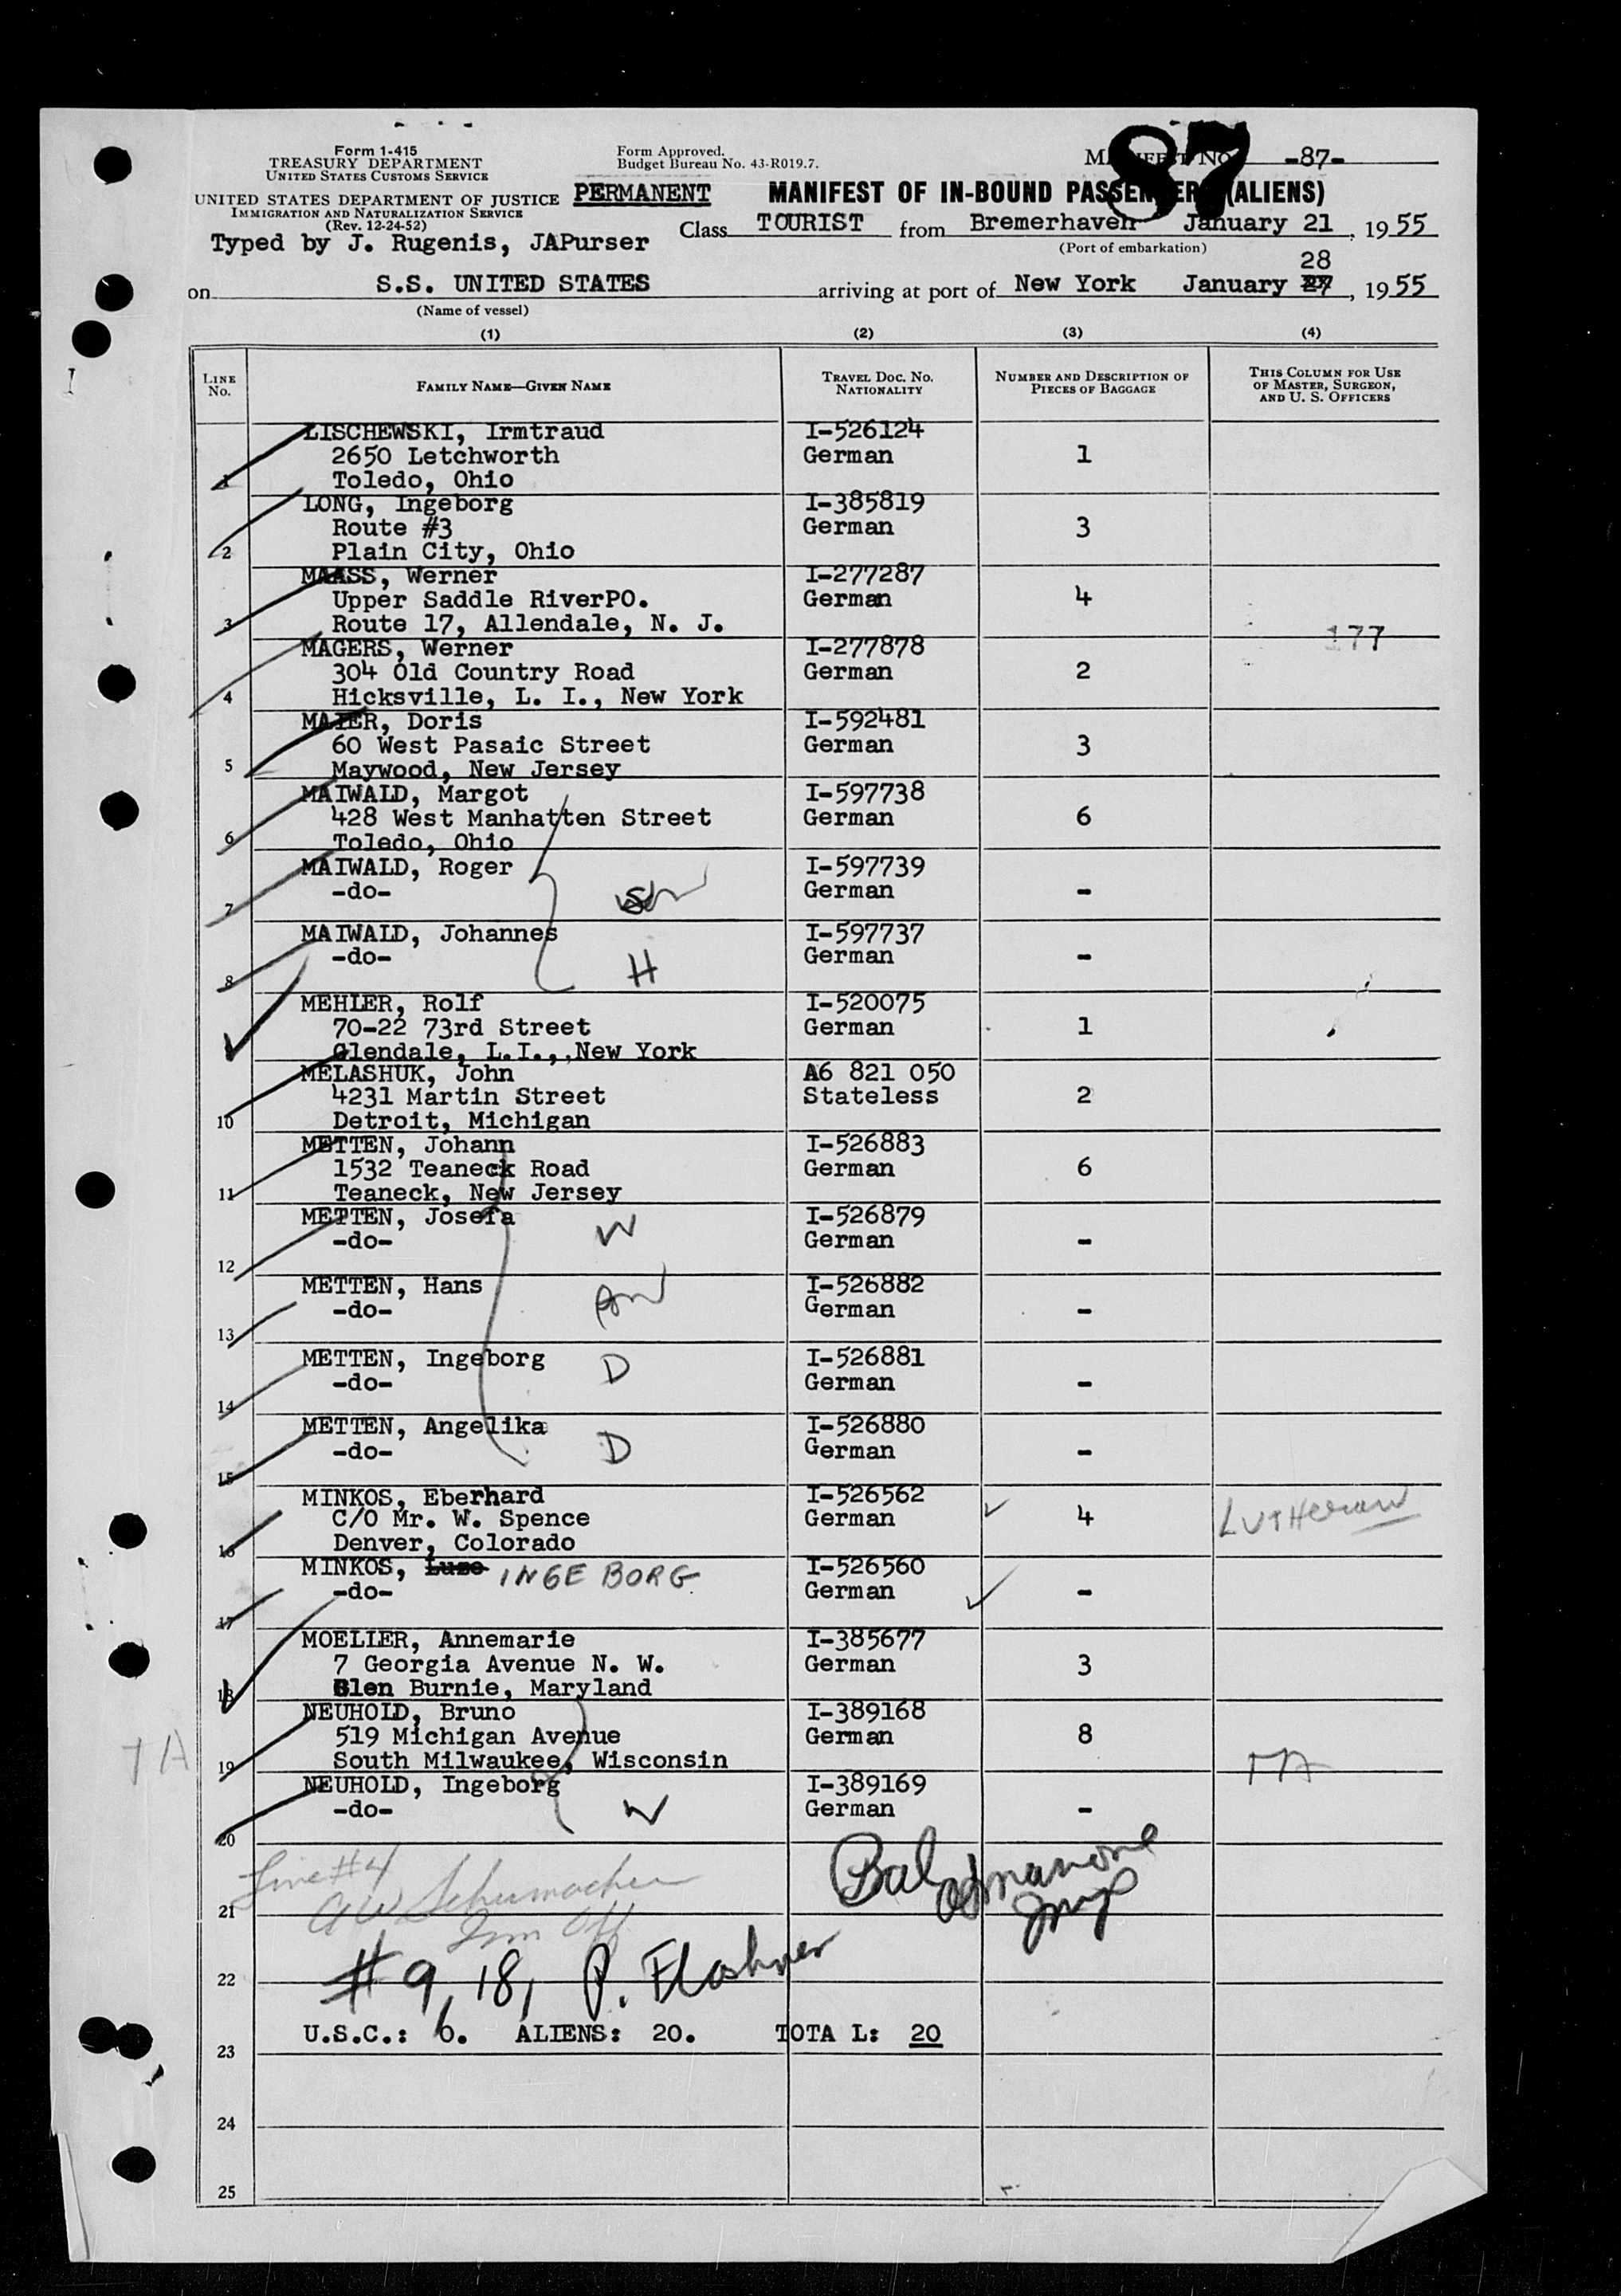 Form 1-415
TREASURY DEPARTMENT
UNITED STATES CUSTOMS SERVICE
UNITED STATES DEPARTMENT OF JUSTICE
IMMIGRATION AND NATURALIZATION SERVICE
(Rev. 12-24-52)
Typed by J. Rugenis, JAPurser
Form Approved.
Budget Bureau No. 43-R019.7.
PERMANENT
87
MANIFEST NO. -87-
MANIFEST OF IN-BOUND PASSENGERS (ALIENS)
Class TOURIST from Bremerhaven January 21, 1955
(Port of embarkation)
28
on S.S. UNITED STATES arriving at port of New York January 27, 1955
(Name of vessel)
(1) (2) (3) (4)
LINE No. FAMILY NAME—GIVEN NAME TRAVEL DOC. NO. NATIONALITY NUMBER AND DESCRIPTION OF PIECES OF BAGGAGE THIS COLUMN FOR USE OF MASTER, SURGEON, AND U. S. OFFICERS
LISCHEWSKI, Irmtraud I-526124
2650 Letchworth German 1
1 Toledo, Ohio
LONG, Ingeborg I-385819
Route #3 German 3
2 Plain City, Ohio
MAASS, Werner I-277287
Upper Saddle RiverPO. German 4
3 Route 17, Allendale, N. J.
MAGERS, Werner I-277878 177
304 Old Country Road German 2
4 Hicksville, L. I., New York
MAIER, Doris I-592481
60 West Pasaic Street German 3
5 Maywood, New Jersey
MAIWALD, Margot I-597738
428 West Manhatten Street German 6
6 Toledo, Ohio
MAIWALD, Roger I-597739
-do- German -
7
MAIWALD, Johannes I-597737
-do- H German -
8
MEHLER, Rolf I-520075
70-22 73rd Street German 1
Glendale, L.I.,,New York
MELASHUK, John A6 821 050
4231 Martin Street Stateless 2
10 Detroit, Michigan
METTEN, Johann I-526883
1532 Teaneck Road German 6
11 Teaneck, New Jersey
METTEN, Josefa I-526879
-do- W German -
12
METTEN, Hans I-526882
-do- German -
13
METTEN, Ingeborg I-526881
-do- D German -
14
METTEN, Angelika I-526880
-do- D German -
15
MINKOS, Eberhard I-526562
C/O Mr. W. Spence German 4 LUTHERAN
16 Denver, Colorado
MINKOS, Luse INGE BORG I-526560
-do- German -
17
MOELLER, Annemarie I-385677
7 Georgia Avenue N. W. German 3
18 Glen Burnie, Maryland
NEUHOLD, Bruno I-389168
519 Michigan Avenue German 8
TA 19 South Milwaukee, Wisconsin
NEUHOLD, Ingeborg I-389169
-do- W German -
20
Line #4
AW Schumacher
Imm Off
21
Bal
22 #9, 18, P. Flashner
U.S.C.: 0. ALIENS: 20. TOTA L: 20
23
24
25